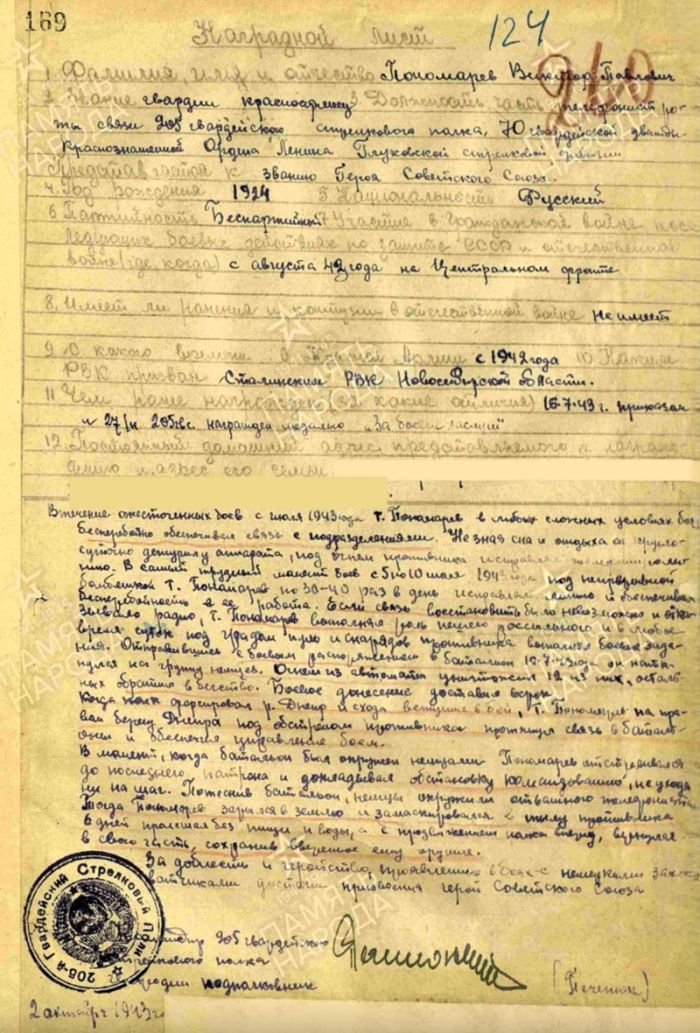 169
124
210
Наградной лист
1. Фамилия, имя и отчество Пономарев Виктор Павлович
2. Звание гвардии красноармеец 3. Должность часть телефонист ро-
ты связи 205 гвардейского стрелкового полка, 70 гвардейской дважды
Краснознаменной Ордена Ленина Глуховской стрелковой дивизии
Представляется к званию Героя Советского Союза.
4. Год рождения 1924 5. Национальность Русский
6. Партийность Беспартийный 7. Участие в гражданской войне, посл
едующих боевых действиях по защите СССР и отечественной
войне (где, когда) с августа 42 года на Центральном фронте
8. Имеет ли ранения и контузии в отечественной войне не имеет
9. С какого времени в Красной Армии с 1942 года 10. Каким
РВК призван Сталинским РВК Новосибирской области.
11. Чем ранее награжден (за какие отличия) 16.7.43 г. приказом
н 27/н 205 гвс. награжден медалью "За боевые заслуги"
12. Постоянный домашний адрес представляемого к награж
дению и адрес его семьи
В течение ожесточенных боев с июля 1943 года т. Пономарев в любых сложных условиях боя
бесперебойно обеспечивал связь с подразделениями. Не зная сна и отдыха он кругло-
суточно дежурил у аппарата, под огнем противника исправлял телефонную ли-
нию. В самый трудный момент боев с 5 по 10 июля 1943 года под непрерывной
бомбежкой т. Пономарев по 30-40 раз в день исправлял линию и обеспечивал
бесперебойность в ее работе. Если связь восстановить было невозможно и отка-
зывало радио, т. Пономарев выполнял роль пешего рассыльного в любое
время суток под градом пуль и снарядов противника выполнял боевые зада-
ния. Отправившись с боевым распоряжением в батальон 10.7.43 года он натк-
нулся на группу немцев. Огнем из автомата уничтожил 12 из них, осталь-
ных обратил в бегство. Боевое донесение доставил в срок.
Когда полк форсировал р. Днепр и сходу вступил в бой, т. Пономарев на пра-
вом берегу Днепра под обстрелом противника протянул связь в баталь-
оны и обеспечил управление боем.
В момент, когда батальон был окружен немцами Пономарев отстреливался
до последнего патрона и докладывал обстановку командованию, не уходя
ни на шаг. Потеснив батальон, немцы окружили отважного телефониста.
Тогда Пономарев зарылся в землю и замаскировался в тылу противника
6 дней пролежал без пищи и воды, а с продвижением полка вперед, вернулся
в свою часть, сохранив вверенное ему оружие.
За доблесть и геройство, проявленные в боях с немецкими зах-
ватчиками достоин присвоения герой Советского Союза
Командир 205 гвардейского
стрелкового полка
гвардии подполковник
(Печенюк)
2 октября 1943 го
205-й Гвардейский Стрелковый Полк
ПАМЯТЬ НАРОДА